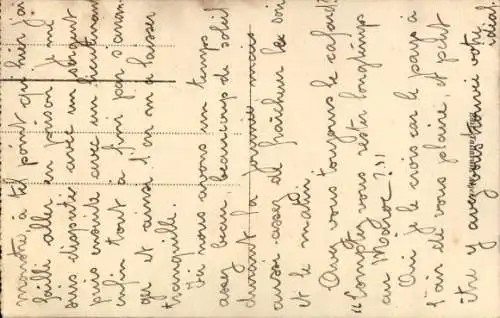 monstre, à tel point qu'hier j'ai
failli aller en prison. Je me
suis disputé avec un sergent
puis ensuite avec un lieutenant
enfin tout a fini par s'arran
ger et ainsi l'on m'a laissé
tranquille.
Ici nous avons un temps
assez beau, beaucoup de soleil
durant la journée mais
aussi assez de fraîcheur le soir
et le matin.
Avez vous toujours le cafard?
"Comptez vous rester longtemps
au Maroc?"
Oui je le crois car le pays a
l'air de vous plaire, et peut
être y avez vous trouvé votre
idéal